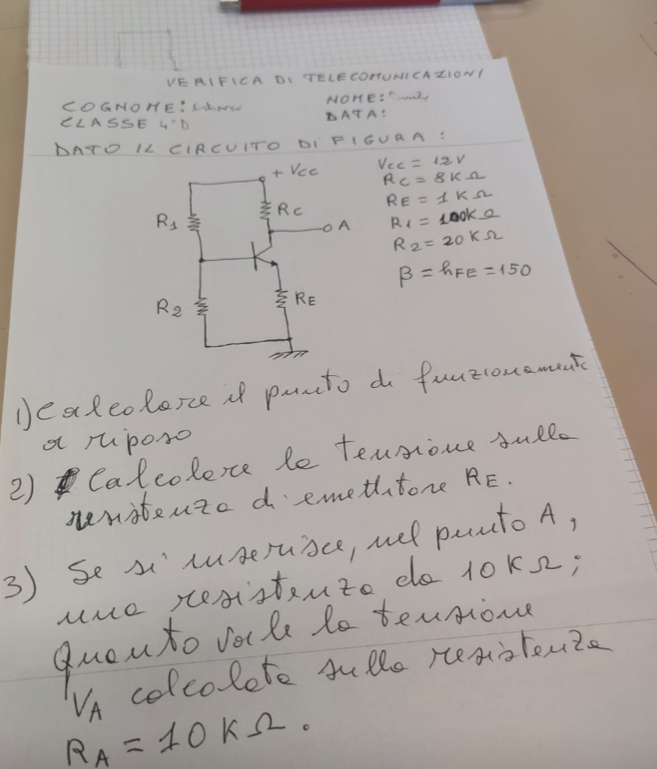 VERIFICA DI TELECOMUNICAZIONI
COGNOME:
NOME:
CLASSE 4°D
DATA:
DATO IL CIRCUITO DI FIGURA:
+ Vcc
Vcc = 12V
RC = 8KΩ
RE = 1KΩ
R1 = 100KΩ
R2 = 20KΩ
β = hFE = 150
R1
RC
A
R2
RE
1) Calcolare il punto di funzionamento
a riposo
2) Calcolare la tensione sulla
resistenza di emettitore RE.
3) Se si inserisce, nel punto A,
una resistenza da 10KΩ;
Quanto vale la tensione
VA calcolata sulla resistenza
RA = 10KΩ.